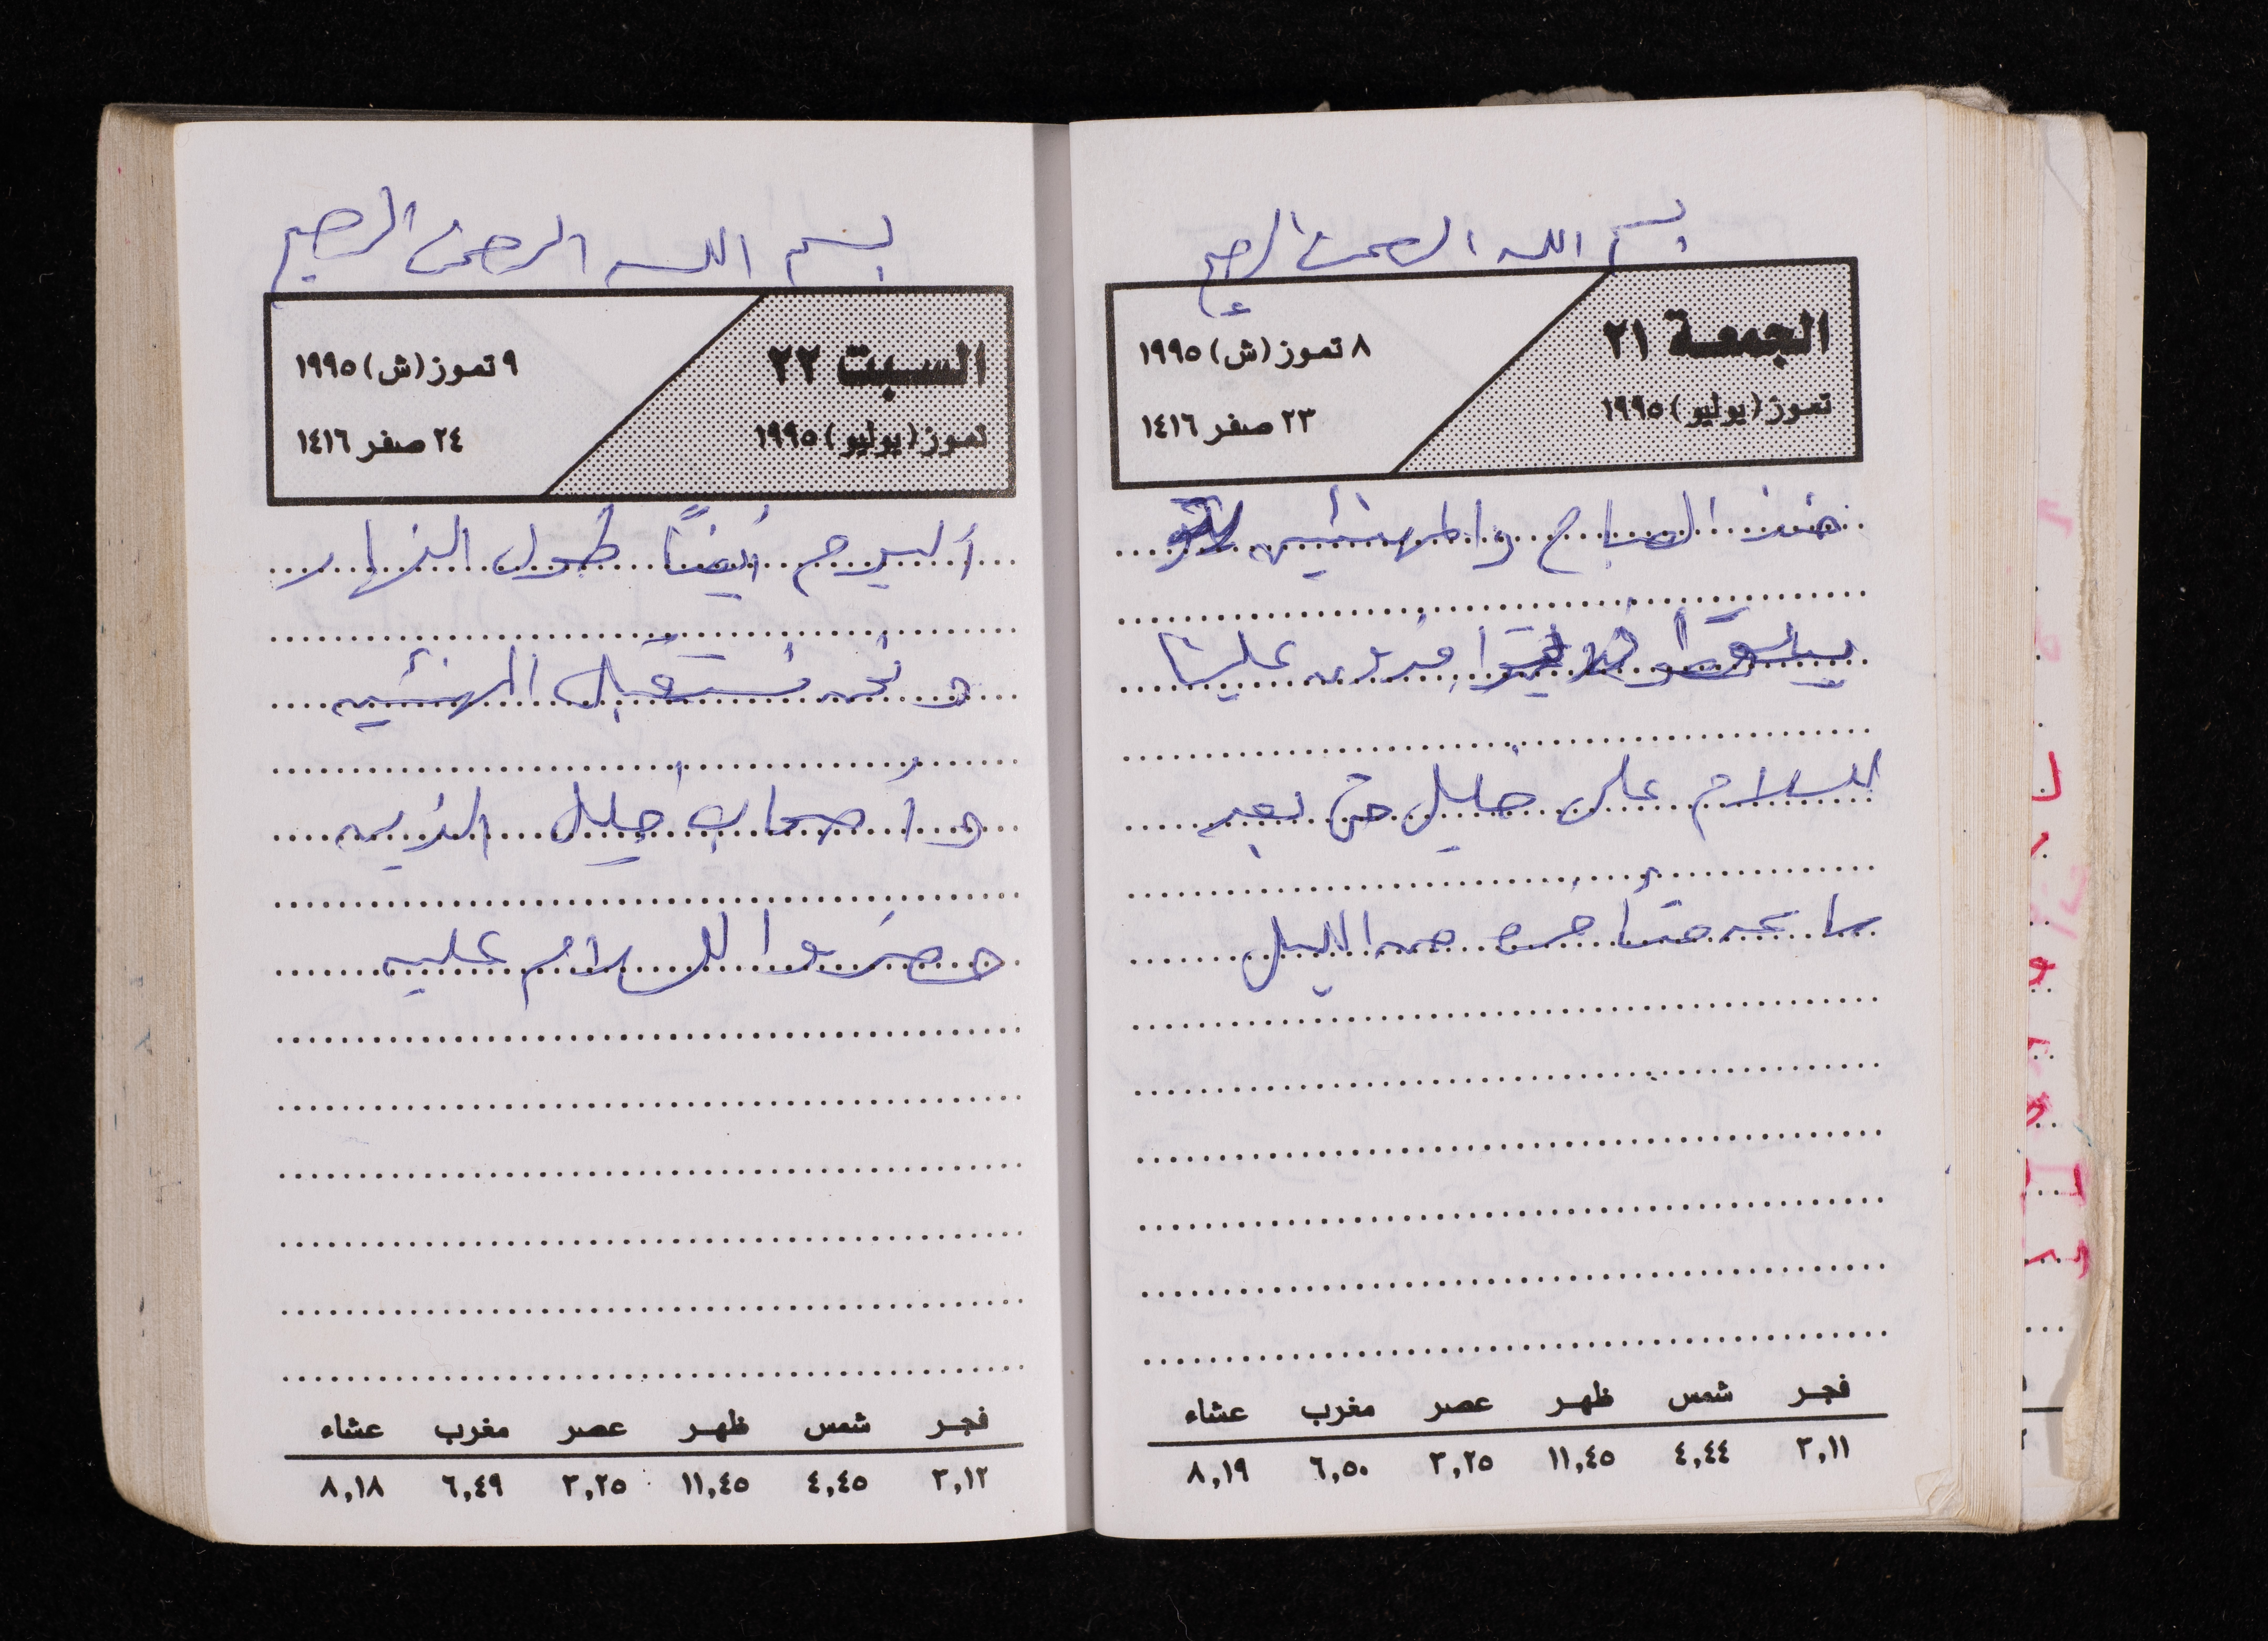 بسم الله الرحمن الرحيم
الجمعة ٢١
تموز (يوليو) ١٩٩٥
٨ تموز (ش) ١٩٩٥
٢٣ صفر ١٤١٦
منذ الصباح والمهنئين
يتوافدون علينا
للسلام على خليل حتى بعد
ساعه متأخره من الليل
فجر شمس ظهر عصر مغرب عشاء
٣,١١ ٤,٤٤ ١١,٤٥ ٣,٢٥ ٦,٥٠ ٨,١٩
بسم الله الرحمن الرحيم
السبت ٢٢
تموز (يوليو) ١٩٩٥
٩ تموز (ش) ١٩٩٥
٢٤ صفر ١٤١٦
أليوم أيضاً طول النهار
و نحن نستقبل المهنئين
و أصحاب خليل الذين
حضروا للسلام عليه
فجر شمس ظهر عصر مغرب عشاء
٣,١٢ ٤,٤٥ ١١,٤٥ ٣,٢٥ ٦,٤٩ ٨,١٨